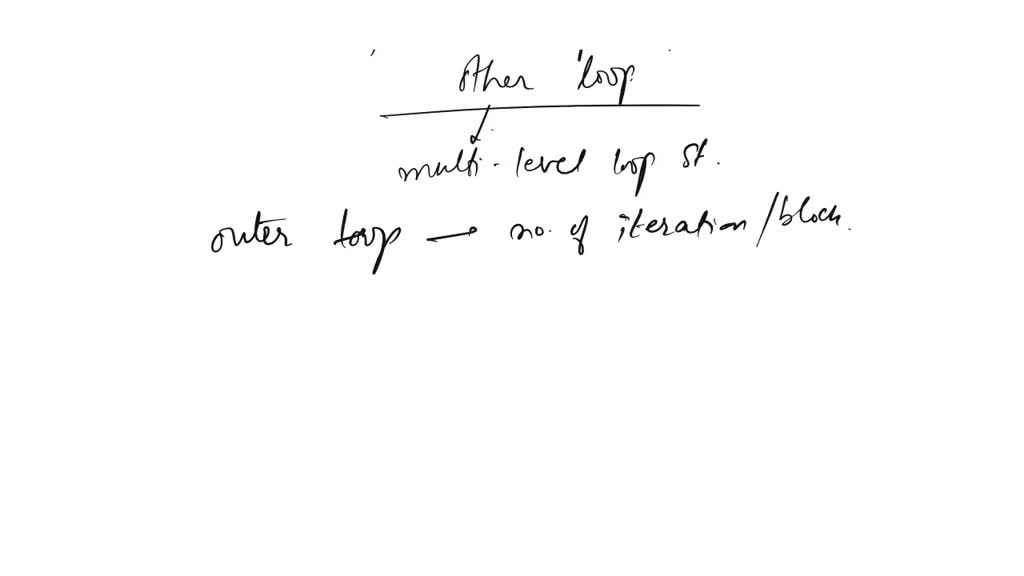 Other 'loop'
multi-level loop st.
outer loop → no. of iteration/block.